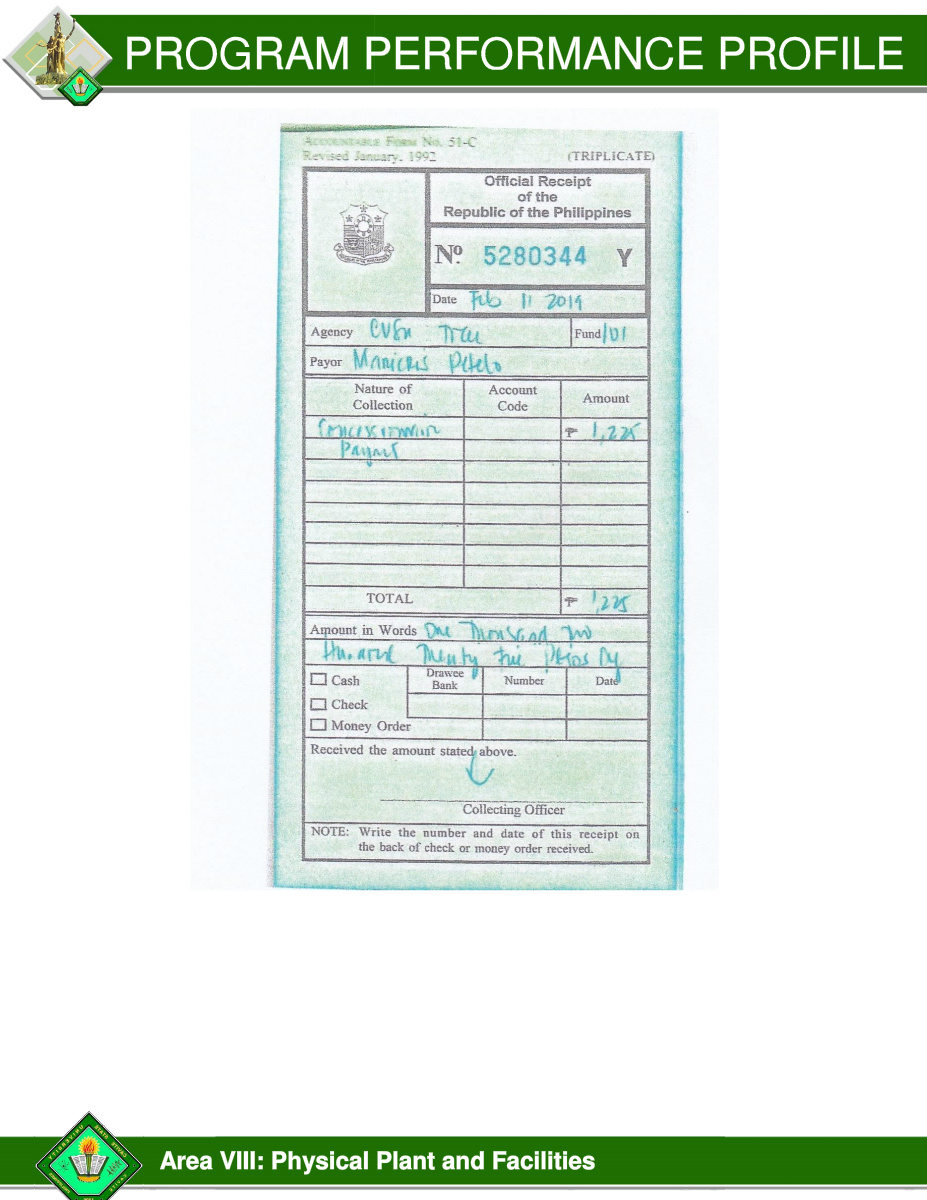 PROGRAM PERFORMANCE PROFILE
ACCOUNTABLE FORM No. 51-C
Revised January, 1992
(TRIPLICATE)
Official Receipt
of the
Republic of the Philippines
Nº 5280344 Y
Date Feb 11 2019
Agency CVSU
Fund 101
Payor
Nature of Collection
Account Code
Amount
₱ 1,225
TOTAL ₱ 1,225
Amount in Words One Thousand two
Hundred Twenty five Pesos
Cash
Drawee Bank
Number
Date
Check
Money Order
Received the amount stated above.
Collecting Officer
NOTE: Write the number and date of this receipt on
the back of check or money order received.
Area VIII: Physical Plant and Facilities